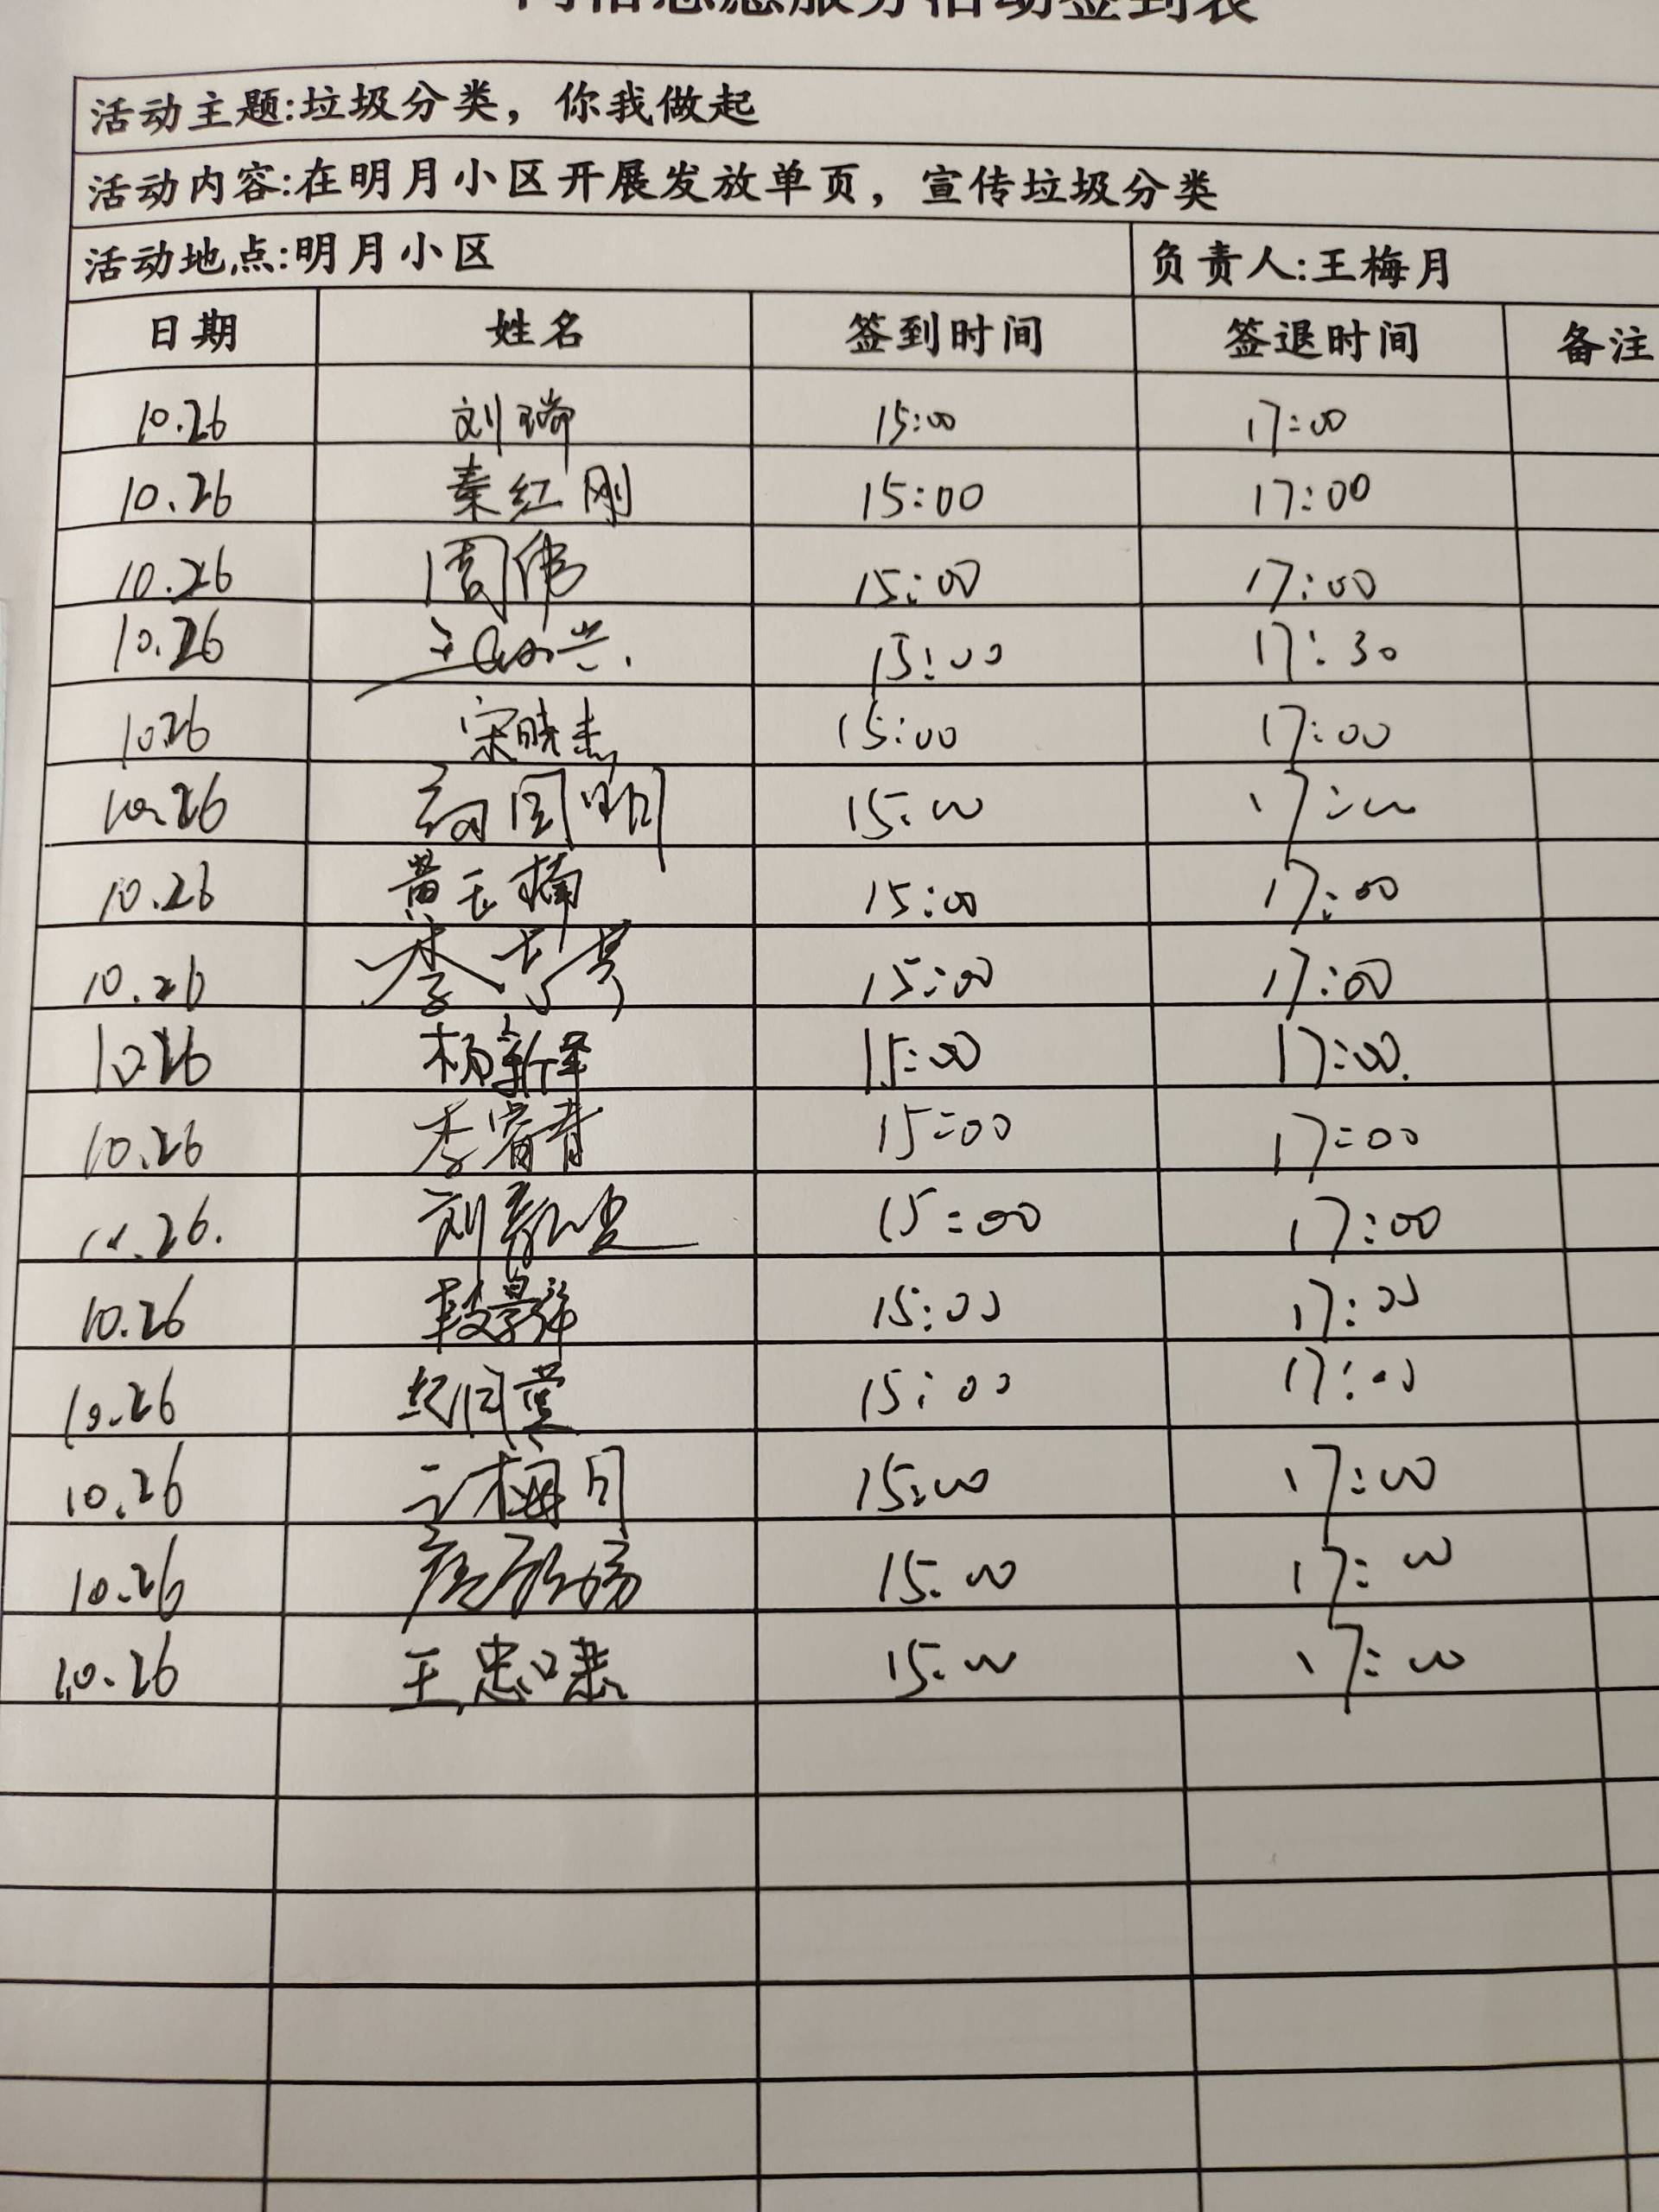 服务活动签到表
活动主题:垃圾分类，你我做起
活动内容:在明月小区开展发放单页，宣传垃圾分类
活动地点:明月小区 负责人:王梅月
日期 姓名 签到时间 签退时间 备注
10.26 刘瑞 15:00 17:00
10.26 秦红刚 15:00 17:00
10.26 周伟 15:00 17:00
10.26 王 兴 15:00 17:30
10.26 宋晓杰 15:00 17:00
10.26 国明 15:00 17:00
10.26 黄玉楠 15:00 17:00
10.26 李 15:00 17:00
10.26 杨新军 15:00 17:00
10.26 李睿青 15:00 17:00
10.26. 刘 15:00 17:00
10.26 段景 15:00 17:00
10.26 纪同莹 15:00 17:00
10.26 王梅月 15:00 17:00
10.26 15:00 17:00
10.26 王忠 15:00 17:00